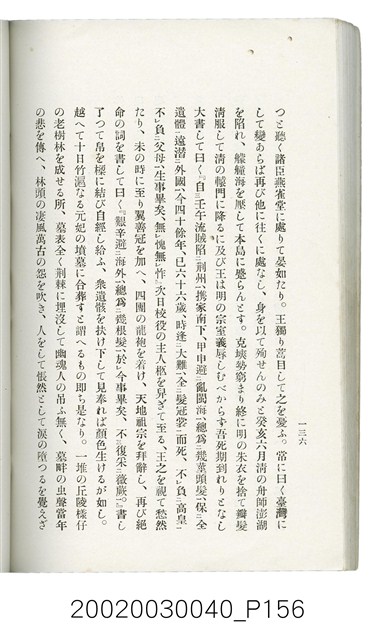 一三六
つと聽く諸臣燕雀堂に處りて晏如たり。王獨り蒿目して之を憂ふ。常に曰く臺灣に
して變あらば再び他に往くに處なし、身を以て殉せんのみと癸亥六月清の舟師澎湖
を陷れ、艨艟海を壓して本島に盛らんとす。克塽勢窮まり終に明の朱衣を捨て辮髮
清服して清の轅門に降るに及び王は明の宗室義辱しむべからず吾死期到れりとなし
大書して曰く『自壬午流賊陷荊州、携家南下、甲申避亂閩海、總爲幾莖頭髮、保全
遺體、遠潛外國、今四十餘年、已六十六歲、時逢大難、全髮冠裳而死、不負高皇、
不負父母、生事畢矣、無愧無怍』次日校役の主人柩を舁ぎて至る、王之を視て愁然
たり、未の時に至り翼善冠を加へ、四團の龍袍を着け、天地祖宗を拜辭し、再び絕
命の詞を書して曰く『艱辛避海外、總爲幾根髮、於今事畢矣、不復采薇蕨』書し
了つて帛を樑に結び自經し給ふ、衆遺骸を扶け下して見奉れば顏色生けるが如し。
越へて十日竹滬なる元妃の墳墓に合葬すと謂へるもの卽ち是なり。一堆の丘陵樣仔
の老樹林を成せる所、墓表全く荊棘に埋沒して幽魂人の吊ふ無く、墓畔の虫聲當年
の悲を傳へ、林頭の凄風萬古の怨を吹き、人をして悵然として淚の墮つるを覺えざ
20020030040_P156